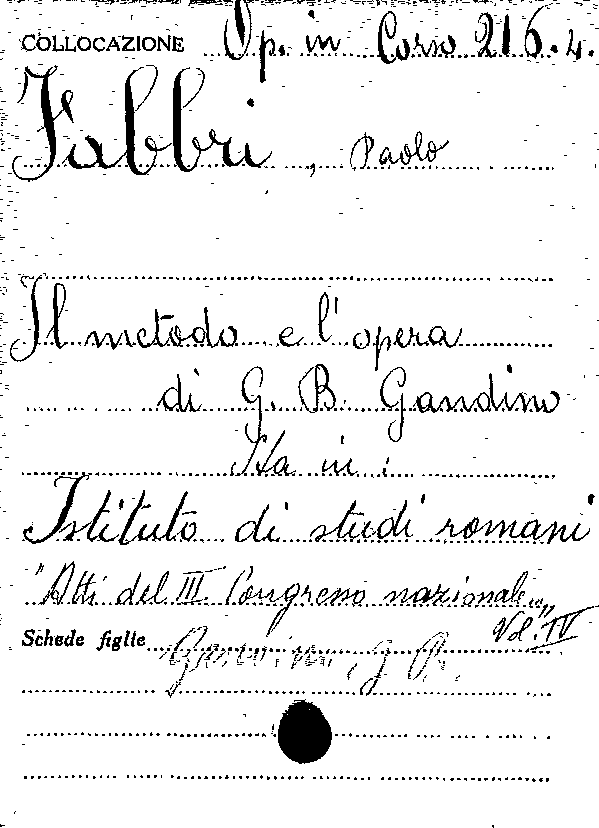 COLLOCAZIONE Op. in Corso 216.4.
Fabbri, Paolo
Il metodo e l'opera
di G. B. Gandino
Sta in:
Istituto di studi romani
"Atti del III Congresso nazionale..."
Vol. IV
Schede figlie Gandino, G. B.